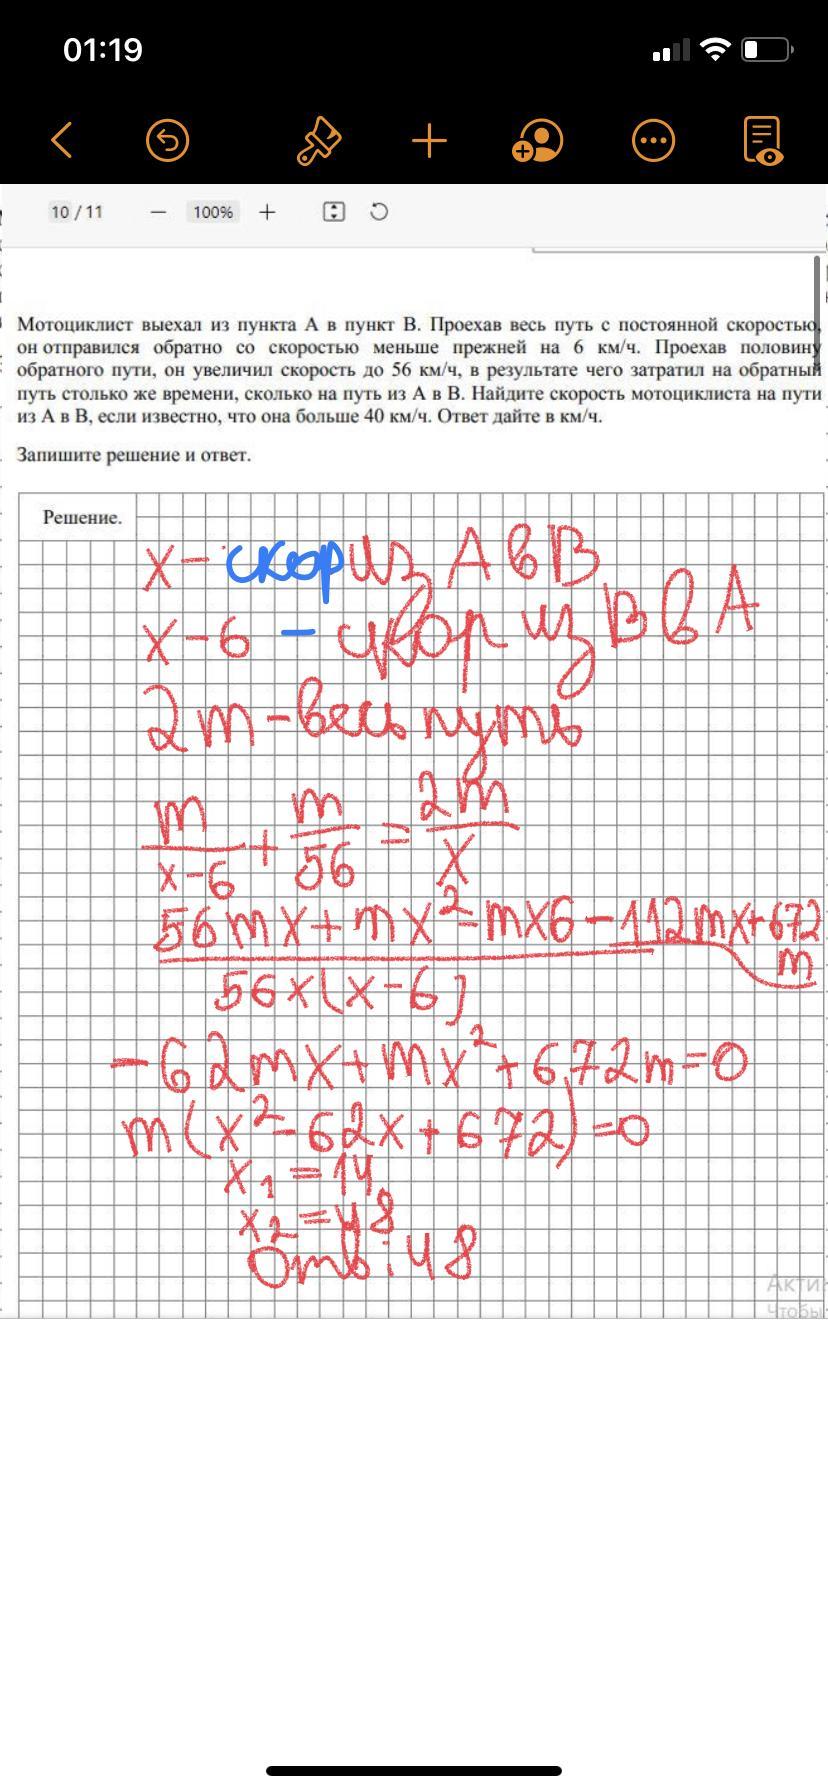 01:19
10 / 11 — 100% +
Мотоциклист выехал из пункта А в пункт В. Проехав весь путь с постоянной скоростью,
он отправился обратно со скоростью меньше прежней на 6 км/ч. Проехав половину
обратного пути, он увеличил скорость до 56 км/ч, в результате чего затратил на обратный
путь столько же времени, сколько на путь из А в В. Найдите скорость мотоциклиста на пути
из А в В, если известно, что она больше 40 км/ч. Ответ дайте в км/ч.
Запишите решение и ответ.
Решение.
x - скор из А в В
x-6 - скор из В в А
2m - весь путь
m/x-6 + m/56 = 2m/x
56mx+mx²-mx6-112mx+672m
56x(x-6)
-62mx+mx²+672m=0
m(x²-62x+672)=0
x₁=14
x₂=48
Отв: 48
Акти
Чтобы